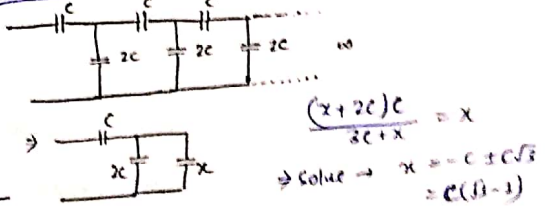 C C C
2C 2C 2C ∞
⇒ C
2C x
(x + 2C)C / 3C + x = x
⇒ Solve → x = -C ± C√3
= C(√3 - 1)